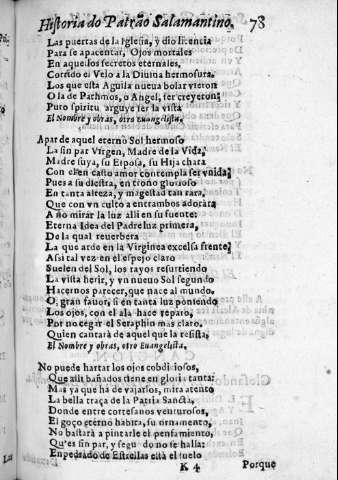 Historia do Patrão Salamantino. 78
Las puertas de la Iglesia, y dio licencia
Para se apacentar, Ojos mortales
En aquellos secretos eternales,
Corrido el Velo a la Diuina hermosura.
Los que esta Aguila nueua bolar vieron
O la de Pathmos, o Angel, ser creyeron;
Puro spiritu arguye ser la vista
El Nombre y obras, otro Euangelista.
Apar de aquel eterno Sol hermoso
La sin par Virgen, Madre de la Vida,
Madre suya, su Esposa, su Hija chara
Con el en casto amor contempla ser vnida;
Pues a su diestra, en trono glorioso
En tanta alteza, y magestad tan rara,
Que con vn culto a entrambos adorara
A no mirar la luz alli en su fuente:
Eterna Idea del Padre luz primera,
De la qual reuerbera
La que arde en la Virginea excelsa frente;
Assi tal vez en el espejo claro
Suelen del Sol, los rayos resurtiendo
La vista herir, y vn nueuo Sol segundo
Hacernos parecer, que nace al mundo.
O, gran fauor, si en tanta luz poniendo
Los ojos, con el ala hace reparo,
Por no cegar el Seraphin mas claro.
Quien cantarà de aquel que la resista,
El Nombre y obras, otro Euangelista.
No puede hartar los ojos cobdiciosos,
Que alli bañados tiene en gloria tanta:
Mas ya que hà de vajarlos, mira atento
La bella traça de la Patria Sancta,
Donde entre cortesanos venturosos,
El goço eterno hàbita, su ornamento,
No bastarà a pintarle el pensamiento,
Qu'es sin par, y segundo no se halla:
Enpedrado de Estrellas està el suelo
K 4 Porque